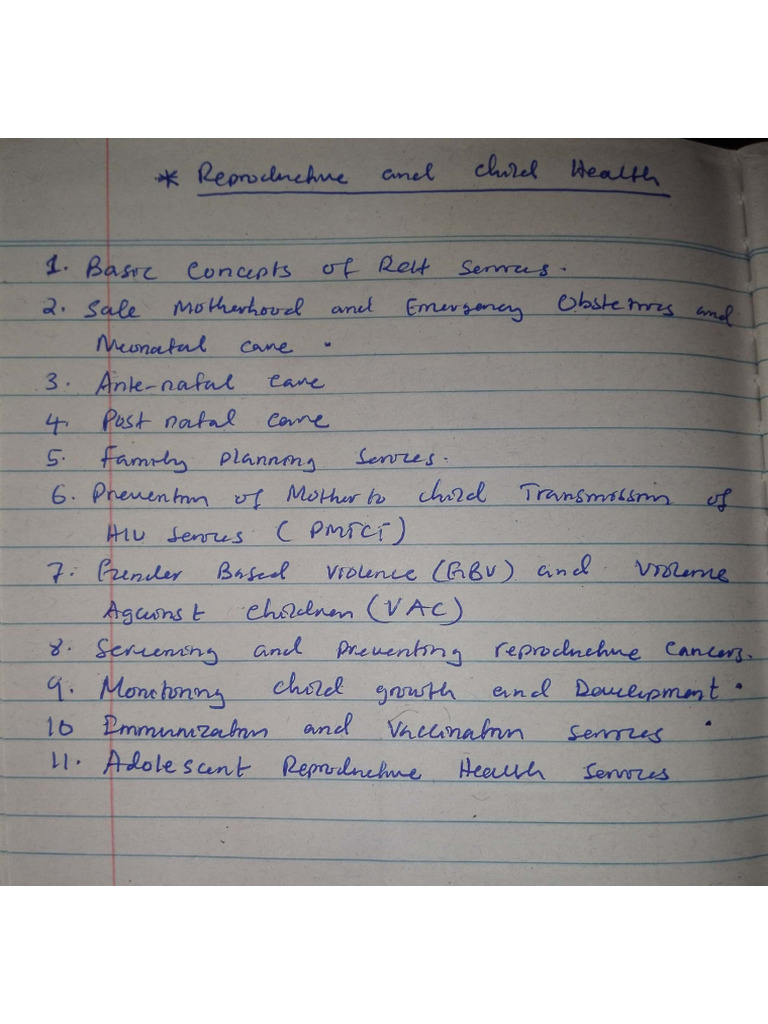 * Reproductive and child Health
1. Basic Concepts of RCH Services.
2. Safe Motherhood and Emergency Obstetrics and
Neonatal care .
3. Ante-natal care
4. Post natal care
5. Family planning Services.
6. Prevention of Mother to child Transmission of
HIV Services ( PMTCT)
7. Gender Based Violence (GBV) and Violence
Against children (VAC)
8. Screening and preventing reproductive Cancers.
9. Monitoring child growth and Development .
10 Immunization and Vaccination services .
11. Adolescent Reproductive Health Services